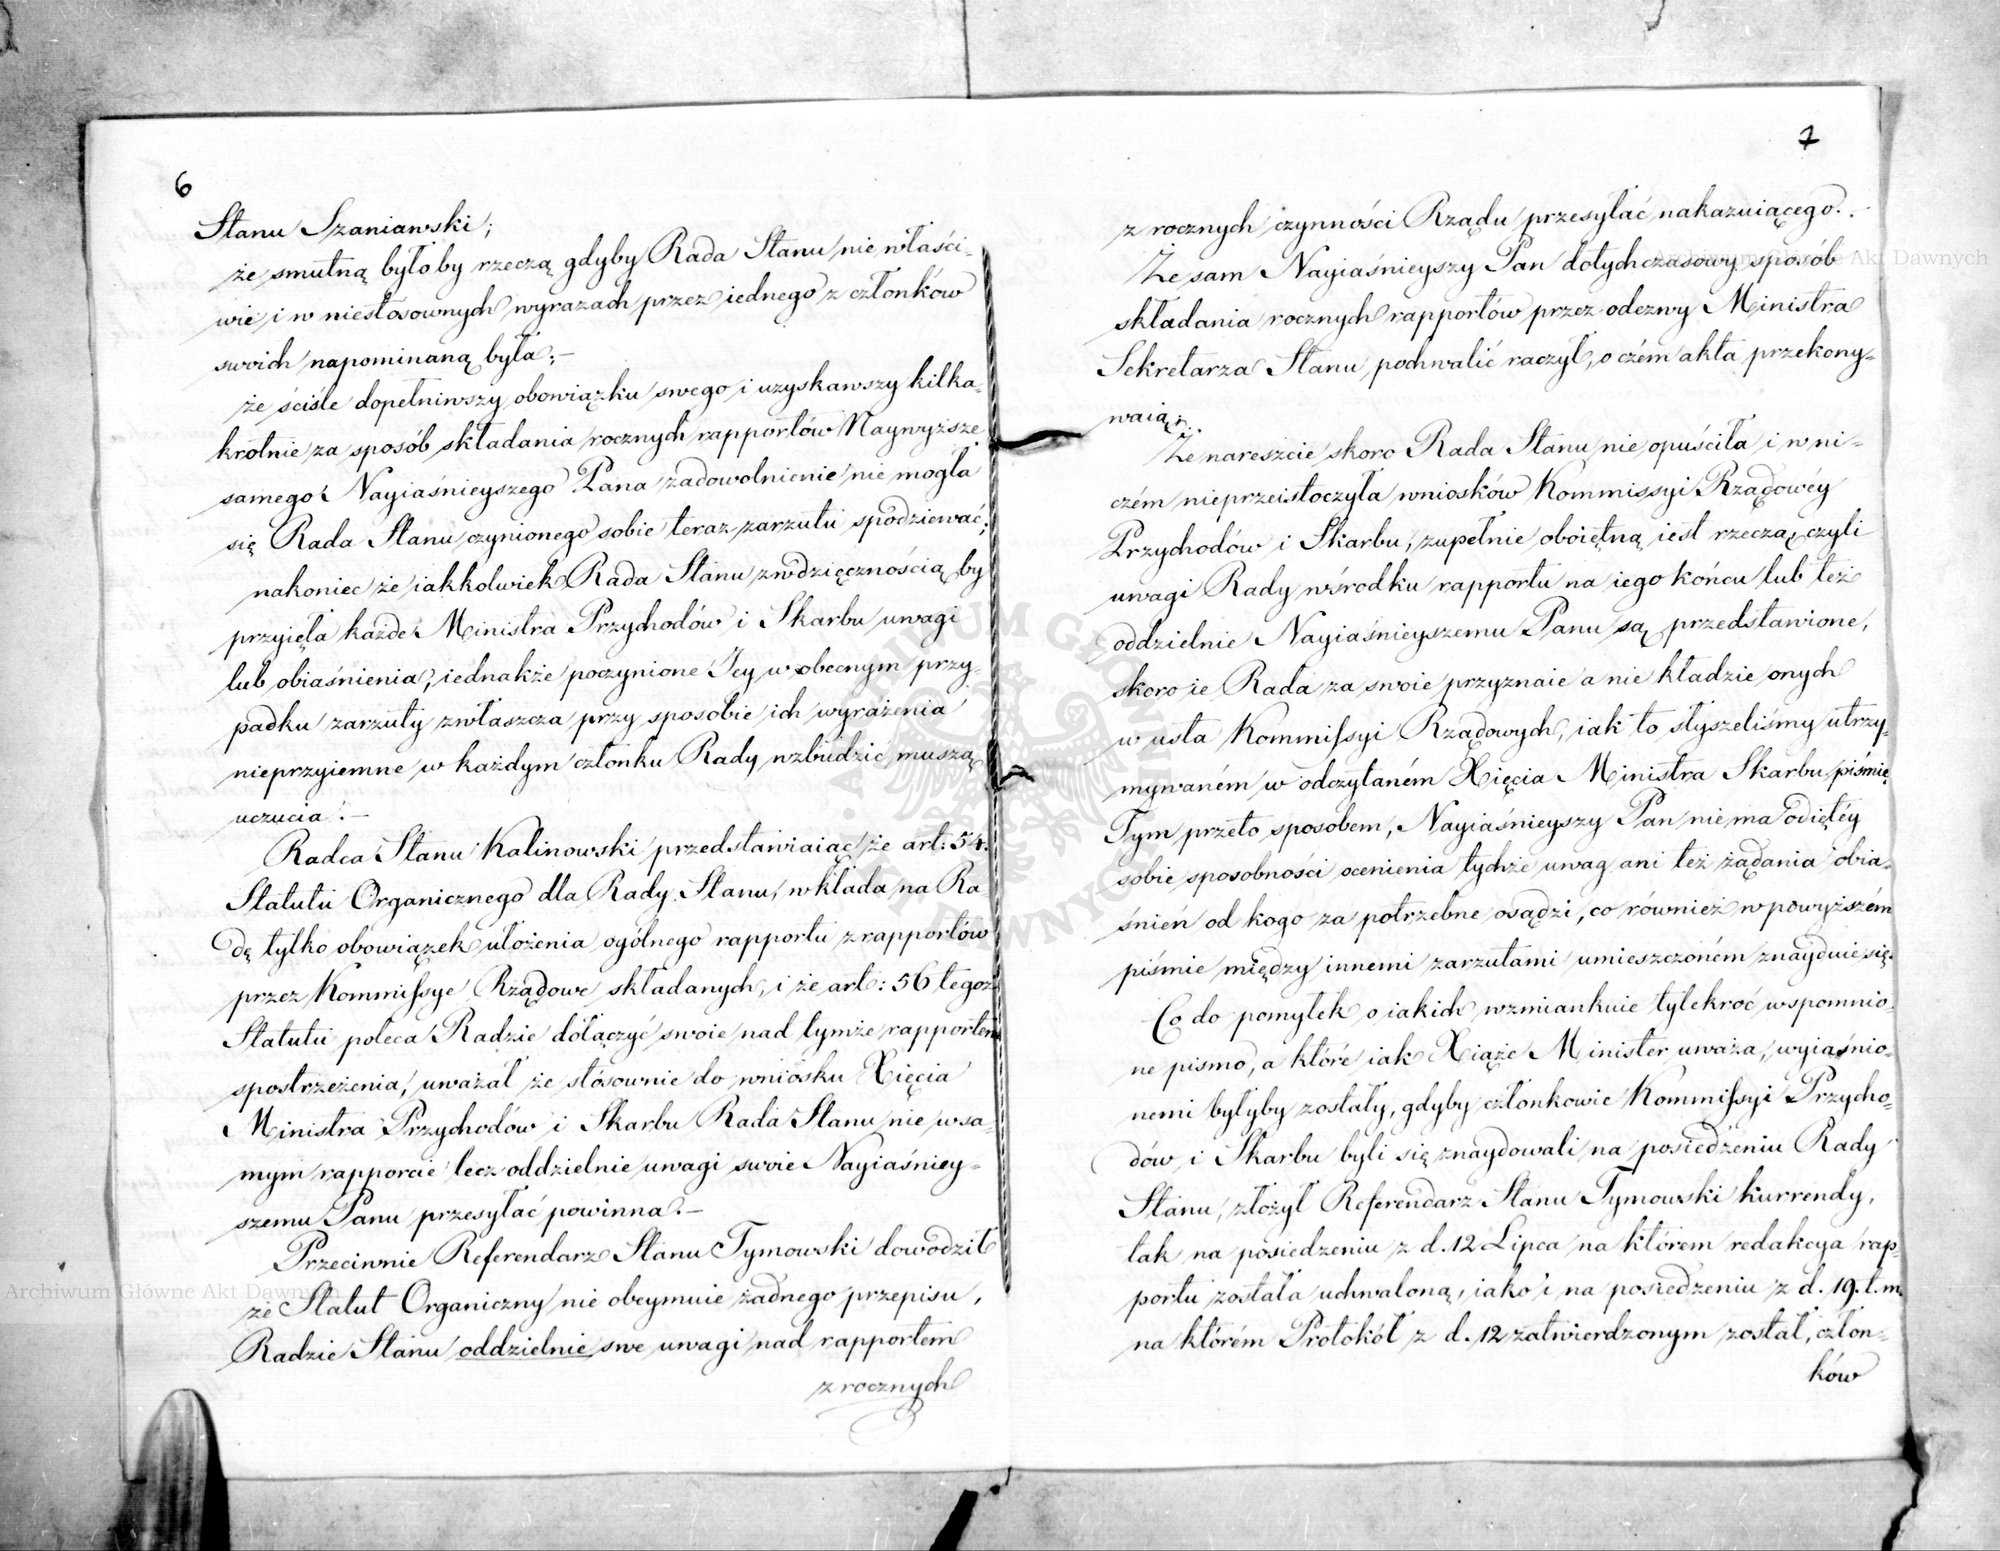 6
Stanu Szaniawski;
że smutną byłoby rzeczą gdyby Rada Stanu nie właści-
wie i w niestosownych wyrazach przez iednego z członków
swoich napominaną była;-
że ściśle dopełniwszy obowiązku swego i uzyskawszy kilka-
krotnie za sposób składania rocznych rapportów Naywyższe
samego Nayiaśnieyszego Pana zadowolnienie nie mogła
się Rada Stanu czynionego sobie teraz zarzutu spodziewać;
nakoniec że iakkolwiek Rada Stanu z wdzięcznością by
przyięła każde Ministra Przychodów i Skarbu uwagi
lub obiaśnienia, iednakże poczynione Jey w obecnym przy-
padku zarzuty zwłaszcza przy sposobie ich wyrażenia
nieprzyiemne w każdym członku Rady wzbudzić muszą
uczucia.-
Radca Stanu Kalinowski przedstawiaiąc że art: 54.
Statutu Organicznego dla Rady Stanu, wkłada na Ra
dę tylko obowiązek ułożenia ogólnego rapportu z rapportów
przez Kommissye Rządowe składanych, i że art: 56 tegoż
Statutu poleca Radzie dołączyć swoie nad tymże rapportem
spostrzeżenia, uważał że stósownie do wniosku Xięcia
Ministra Przychodów i Skarbu Rada Stanu nie w sa-
mym rapporcie lecz oddzielnie uwagi swoie Nayiaśniey-
szemu Panu przesyłać powinna.-
Przeciwnie Referendarz Stanu Tymowski dowodził
że Statut Organiczny nie obeymuie żadnego przepisu,
Radzie Stanu oddzielnie swe uwagi nad rapportem
z rocznych
7
z rocznych czynności Rządu przesyłać nakazuiącego.
Że sam Nayiaśnieyszy Pan dotychczasowy sposób
składania rocznych rapportów przez odezwy Ministra
Sekretarza Stanu pochwalić raczył, o czém akta przekony-
waią;
Że nareszcie skoro Rada Stanu nie opuściła i w ni-
czém nieprzeistoczyła wniosków Kommissyi Rządowéy
Przychodów i Skarbu, zupełnie oboiętną iest rzeczą, czyli
uwagi Rady w środku rapportu na iego końcu lub też
oddzielnie Nayiaśnieyszemu Panu są przedstawione,
skoro ie Rada za swoie przyznaie a nie kładzie onych
w usta Kommissyi Rządowych, iak to słyszeliśmy utrzy-
mywaném w odczytaném Xięcia Ministra Skarbu piśmie
Tym przeto sposobem, Nayiaśnieyszy Pan nie ma odiętéy
sobie sposobności ocenienia tychże uwag ani też żądania obia-
śnień od kogo za potrzebne osądzi, co również w powyższém
piśmie między innemi zarzutami umieszczoném znayduie się.
Co do pomyłek o iakich wzmiankuie tylekroć wspomnio
ne pismo, a które iak Xiąże Minister uważa, wyiaśnio-
nemi byłyby zostały, gdyby członkowie Kommissyi Przycho-
dów i Skarbu byli się znaydowali na posiedzeniu Rady
Stanu, złożył Referendarz Stanu Tymowski kurrendy,
tak na posiedzeniu z d. 12 Lipca na którem redakcya rap-
portu została uchwaloną, iako i na posiedzeniu z d. 19. t. m.
na którém Protokół z d. 12 zatwierdzonym został, człon-
ków
Archiwum Główne Akt Dawnych
Archiwum Główne Akt Dawnych